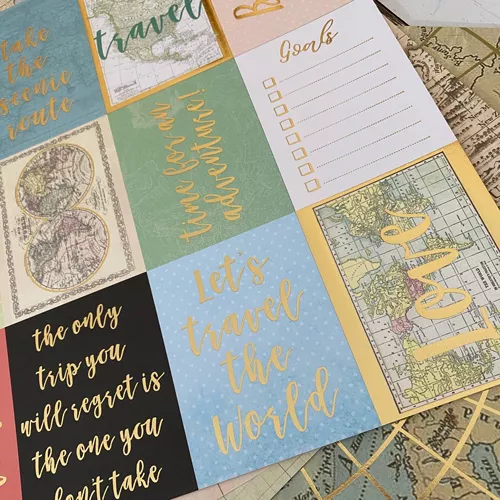 take
the
scenic
route
travel
Goals
time for an
adventure!
Let's
travel
the
World
Love
the only
trip you
will regret is
the one you
don't take